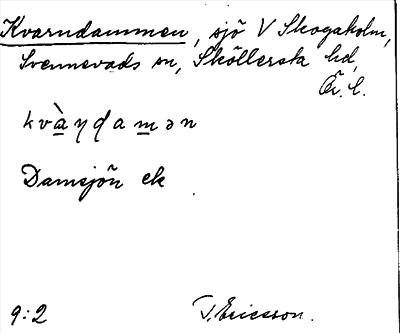 Kvarndammen, sjö V Skogaholm,
Svennevads sn, Sköllersta hd,
Ör. l.
kvàṇḍamən
Damsjön ek
9:2
T. Ericsson.